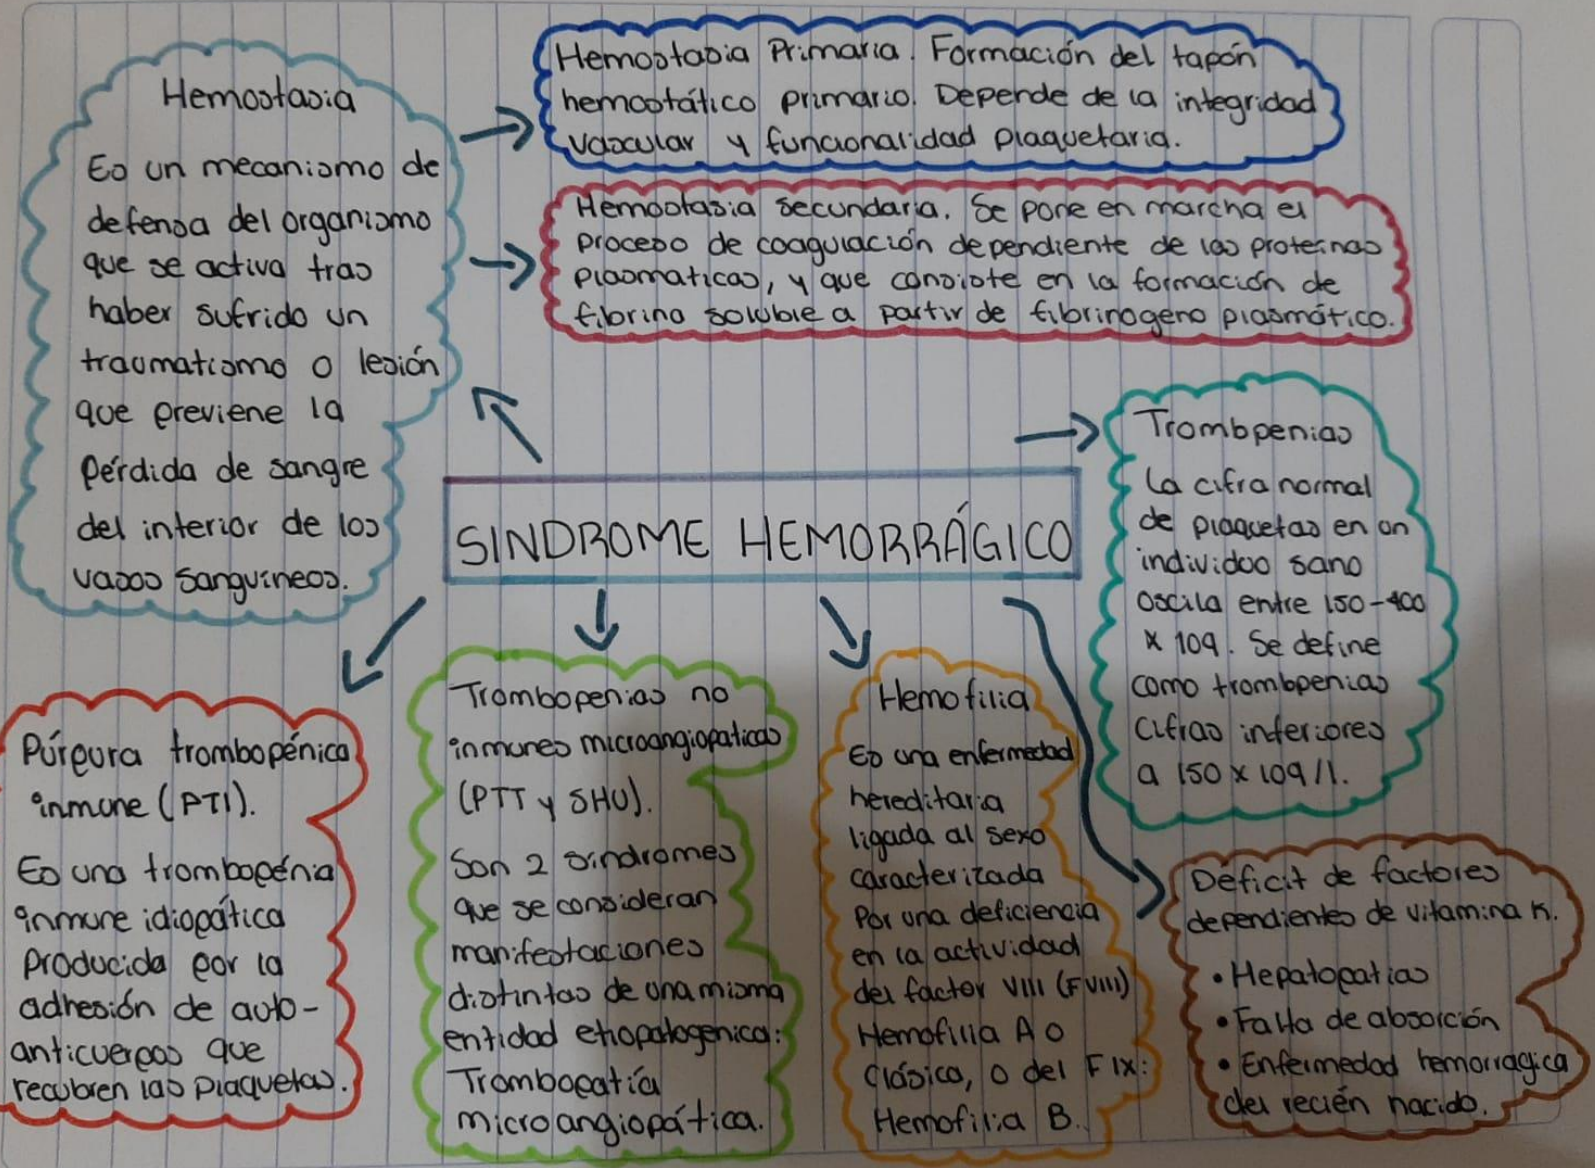 Hemostasia
Es un mecanismo de
defensa del organismo
que se activa tras
haber sufrido un
traumatismo o lesión
que previene la
pérdida de sangre
del interior de los
vasos sanguíneos.
Hemostasia Primaria. Formación del tapón
hemostático primario. Depende de la integridad
vascular y funcionalidad plaquetaria.
Hemostasia secundaria. Se pone en marcha el
proceso de coagulación dependiente de las proteínas
plasmaticas, y que consiste en la formación de
fibrina soluble a partir de fibrinogeno plasmático.
SINDROME HEMORRÁGICO
Trombpenias
La cifra normal
de plaquetas en un
individuo sano
oscila entre 150-400
x 109. Se define
como trombpenias
cifras inferiores
a 150 x 109/l.
Púrpura trombopénica
inmune (PTI).
Es una trombopénia
inmune idiopática
Producida por la
adhesión de auto-
anticuerpos que
recubren las plaquetas.
Trombopenias no
inmunes microangiopaticas
(PTT y SHU).
Son 2 sindromes
que se consideran
manifestaciones
distintas de una misma
entidad etiopatogenica:
Trombopatía
microangiopática.
Hemofilia
Es una enfermedad
hereditaria
ligada al sexo
caracterizada
Por una deficiencia
en la actividad
del factor VIII (FVIII)
Hemofilia A o
Clásica, o del FIX:
Hemofilia B.
Déficit de factores
dependientes de vitamina K.
• Hepatopatias
• Falta de absorción
• Enfermedad hemorragica
del recién nacido.